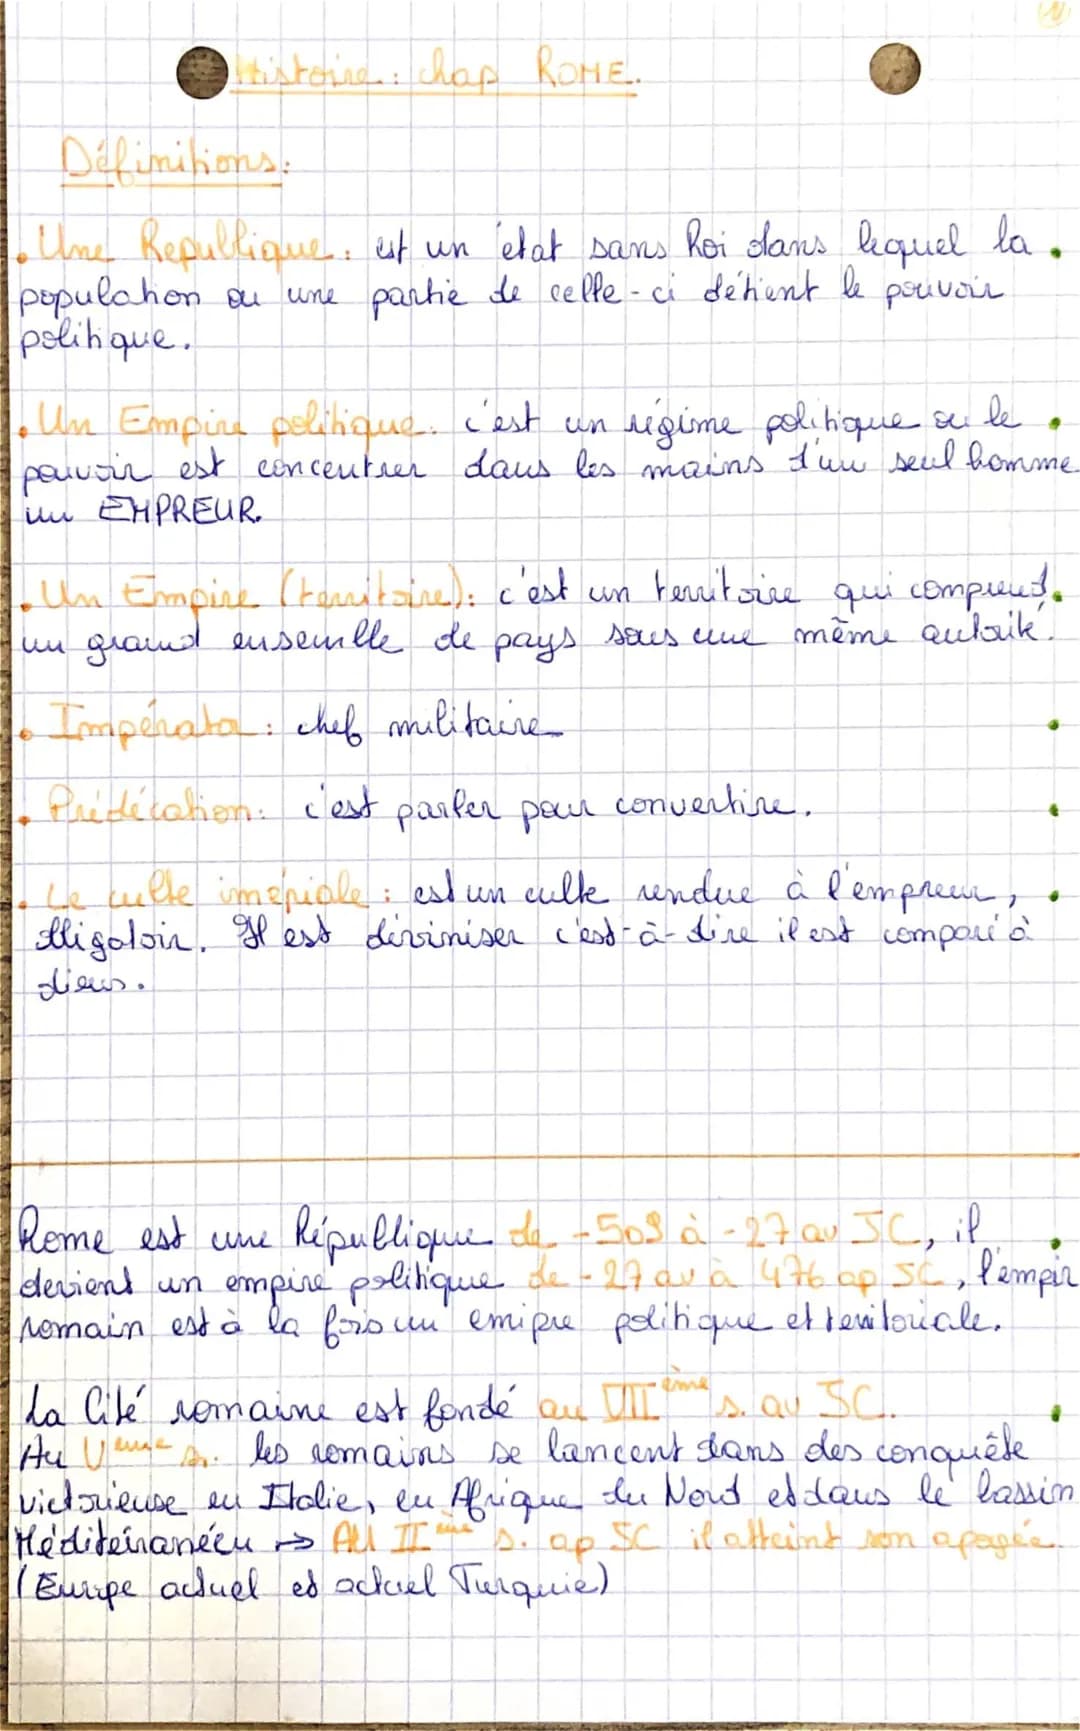 Histoire: chap ROME.
Définitions:
. Une Republique: est un état sans Roi dans lequel la
population ou une partie de celle-ci détient le pouvoir
politique.
. Un Empire politique: c'est un régime politique ou le
pouvoir est concentrer dans les mains d'un seul homme
un EMPREUR.
. Un Empire (territoire): c'est un territoire qui comprend
un grand ensemble de pays sous une même autorité.
. Impérator: chef militaire
. Prédécation: c'est parler pour convertire.
. Le culte impériale: est un culte rendue à l'empreur,
obligatoir. Il est diviniser c'est-à-dire il est comparé à
dieus.
Rome est une République de -509 à -27 av JC, il
devient un empire politique de -27 av à 476 ap JC, l'empir
romain est à la fois un emipre politique et teritoriale.
La Cité romaine est fondé au VIII ème s. av JC.
Au Veme s. les romains se lancent dans des conquête
victorieuse en Italie, en Afrique du Nord et dans le bassin
Méditerranéen → AU IIème s. ap JC il atteint son apogée.
(Europe actuel et actuel Turquie)